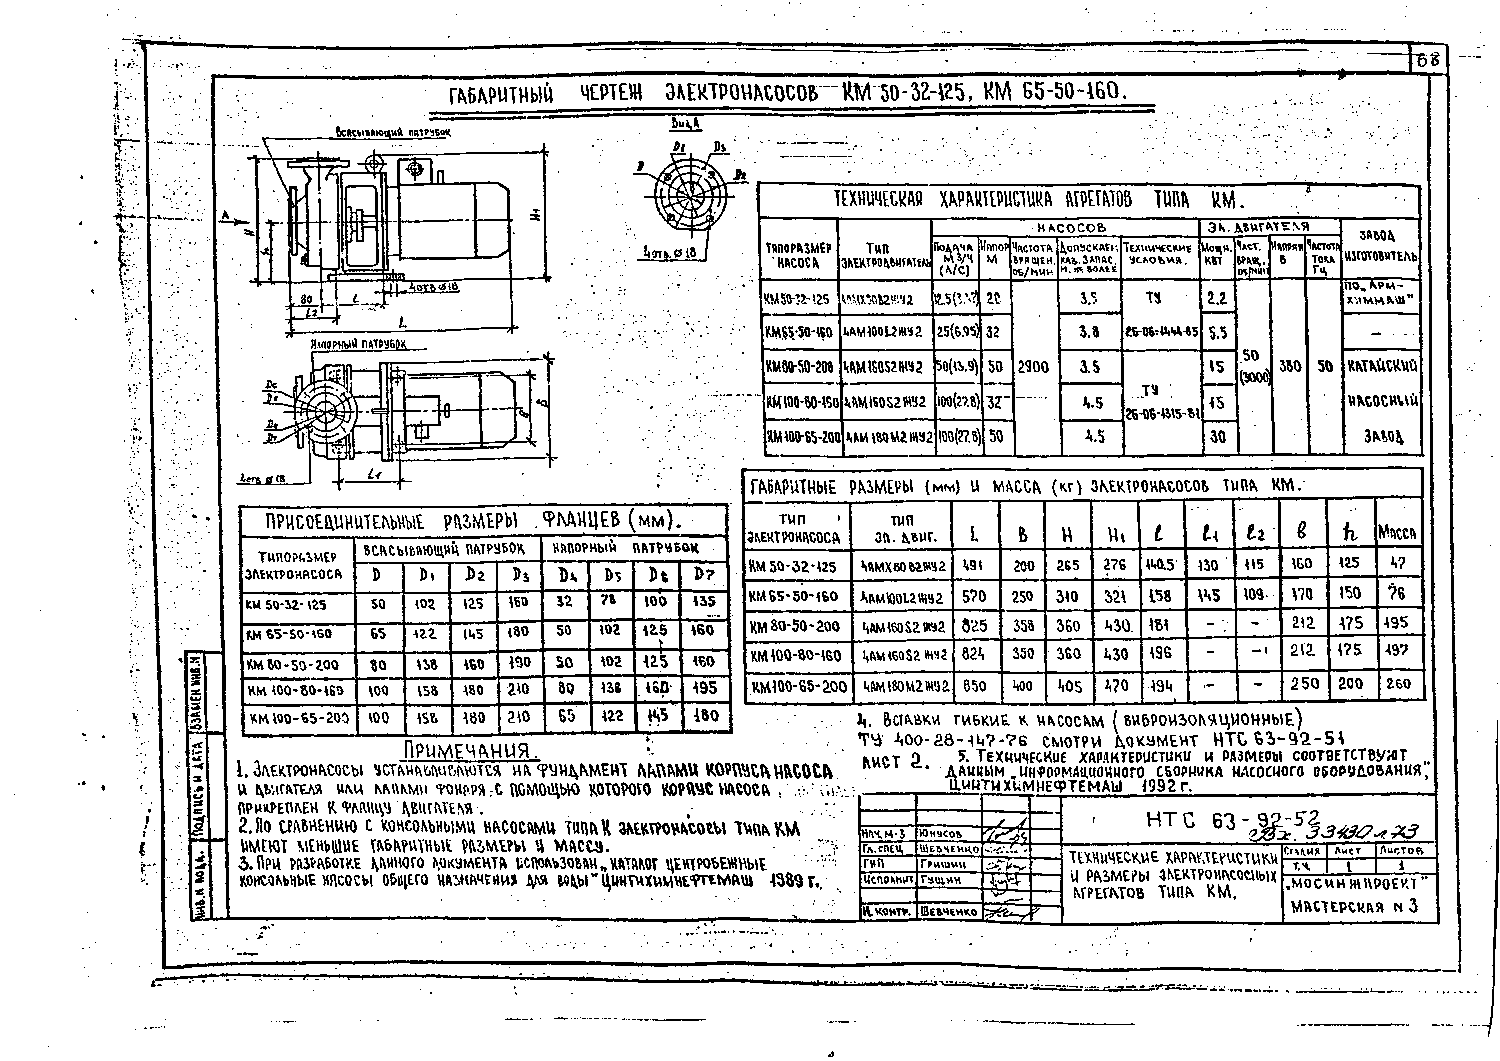 68
ГАБАРИТНЫЙ ЧЕРТЕЖ ЭЛЕКТРОНАСОСОВ КМ 50-32-125, КМ 65-50-160.
Всасывающий патрубок
Вид А
D D1 D3 D2
4 отв. ∅18
А H h H1
80 l 4 отв ∅18
l2
L
Напорный патрубок
D6
D5
D4
D7
в В
4 отв ∅18
l1
ТЕХНИЧЕСКАЯ ХАРАКТЕРИСТИКА АГРЕГАТОВ ТИПА КМ.
ТИПОРАЗМЕР НАСОСА | ТИП ЭЛЕКТРОДВИГАТЕЛЬ | НАСОСОВ | ЭЛ. ДВИГАТЕЛЯ | ЗАВОД ИЗГОТОВИТЕЛЬ
ПОДАЧА М3/Ч (Л/С) | НАПОР М | ЧАСТОТА ВРАЩЕН. ОБ/МИН | ДОПУСКАЕМ. КАВ. ЗАПАС, М. НЕ БОЛЕЕ | ТЕХНИЧЕСКИЕ УСЛОВИЯ. | МОЩН. КВТ | ЧАСТ. ВРАЩ. ОБ/МИН | НАПРЯЖ В | ЧАСТОТА ТОКА ГЦ
КМ 50-32-125 | 20 | 3.5 | ТУ | 2.2 | ПО „АРМ-ХИММАШ"
КМ65-50-160 | 4АМ100L2ЖУ2 | 25(6.95) | 32 | 3.8 | 26-06-1444-85 | 5.5 | –
КМ80-50-200 | 4АМ160S2ЖУ2 | 50(13.9) | 50 | 2900 | 3.5 | 15 | 50 (3000) | 380 | 50 | КАТАЙСКИЙ
КМ 100-80-160 | 4АМ160S2 ЖУ2 | 100(27.8) | 32 | 4.5 | ТУ 26-06-1315-81 | 15 | НАСОСНЫЙ
КМ 100-65-200 | 4АМ 180М2 ЖУ2 | 100(27.8) | 50 | 4.5 | 30 | ЗАВОД
ГАБАРИТНЫЕ РАЗМЕРЫ (мм) И МАССА (кг) ЭЛЕКТРОНАСОСОВ ТИПА КМ.
ТИП ЭЛЕКТРОНАСОСА | ТИП ЭЛ. ДВИГ. | L | В | Н | Н1 | l | l1 | l2 | в | h | МАССА
КМ 50-32-125 | 4АМХ80В2ЖУ2 | 491 | 200 | 265 | 276 | 140.5 | 130 | 115 | 160 | 125 | 47
КМ 65-50-160 | 4АМ100L2ЖУ2 | 570 | 250 | 310 | 321 | 158 | 145 | 109 | 170 | 150 | 76
КМ 80-50-200 | 4АМ160S2 ЖУ2 | 825 | 358 | 360 | 430 | 181 | - | - | 212 | 175 | 195
КМ 100-80-160 | 4АМ160S2 ЖУ2 | 824 | 350 | 360 | 430 | 196 | - | - | 212 | 175 | 197
КМ100-65-200 | 4АМ180М2 ЖУ2 | 850 | 400 | 405 | 470 | 194 | - | - | 250 | 200 | 260
ПРИСОЕДИНИТЕЛЬНЫЕ РАЗМЕРЫ ФЛАНЦЕВ (мм).
ТИПОРАЗМЕР ЭЛЕКТРОНАСОСА | ВСАСЫВАЮЩИЙ ПАТРУБОК | НАПОРНЫЙ ПАТРУБОК
D | D1 | D2 | D3 | D4 | D5 | D6 | D7
КМ 50-32-125 | 50 | 102 | 125 | 160 | 32 | 78 | 100 | 135
КМ 65-50-160 | 65 | 122 | 145 | 180 | 50 | 102 | 125 | 160
КМ 80-50-200 | 80 | 138 | 160 | 190 | 50 | 102 | 125 | 160
КМ 100-80-160 | 100 | 158 | 180 | 210 | 80 | 138 | 160 | 195
КМ 100-65-200 | 100 | 158 | 180 | 210 | 65 | 122 | 145 | 180
ПРИМЕЧАНИЯ.
1. ЭЛЕКТРОНАСОСЫ УСТАНАВЛИВАЮТСЯ НА ФУНДАМЕНТ ЛАПАМИ КОРПУСА НАСОСА
И ДВИГАТЕЛЯ ИЛИ ЛАПАМИ ФОНАРЯ, С ПОМОЩЬЮ КОТОРОГО КОРПУС НАСОСА
ПРИКРЕПЛЕН К ФЛАНЦУ ДВИГАТЕЛЯ.
2. ПО СРАВНЕНИЮ С КОНСОЛЬНЫМИ НАСОСАМИ ТИПА К ЭЛЕКТРОНАСОСЫ ТИПА КМ
ИМЕЮТ МЕНЬШИЕ ГАБАРИТНЫЕ РАЗМЕРЫ И МАССУ.
3. ПРИ РАЗРАБОТКЕ ДАННОГО ДОКУМЕНТА ИСПОЛЬЗОВАН „КАТАЛОГ ЦЕНТРОБЕЖНЫЕ
КОНСОЛЬНЫЕ НАСОСЫ ОБЩЕГО НАЗНАЧЕНИЯ ДЛЯ ВОДЫ" ЦИНТИХИМНЕФТЕМАШ 1989 г.
4. ВСТАВКИ ГИБКИЕ К НАСОСАМ (ВИБРОИЗОЛЯЦИОННЫЕ)
ТУ 400-28-147-76 СМОТРИ ДОКУМЕНТ НТС 63-92-51
ЛИСТ 2.
5. ТЕХНИЧЕСКИЕ ХАРАКТЕРИСТИКИ И РАЗМЕРЫ СООТВЕТСТВУЮТ
ДАННЫМ „ИНФОРМАЦИОННОГО СБОРНИКА НАСОСНОГО ОБОРУДОВАНИЯ,"
ЦИНТИХИМНЕФТЕМАШ 1992 г.
НАЧ. М-3 ЮНУСОВ
ГЛ. СПЕЦ ШЕВЧЕНКО
ГИП ГРИШИН
ИСПОЛНИТ ГУЩИН
Н. КОНТР. ШЕВЧЕНКО
НТС 63-92-52
ТЕХНИЧЕСКИЕ ХАРАКТЕРИСТИКИ
И РАЗМЕРЫ ЭЛЕКТРОНАСОСНЫХ
АГРЕГАТОВ ТИПА КМ.
СТАДИЯ ЛИСТ ЛИСТОВ
Т.Ч. 1 1
„МОСИНЖПРОЕКТ"
МАСТЕРСКАЯ N 3
ВЗАМЕН ИНВ. N
ПОДПИСЬ И ДАТА
ИНВ. N ПОДЛ.